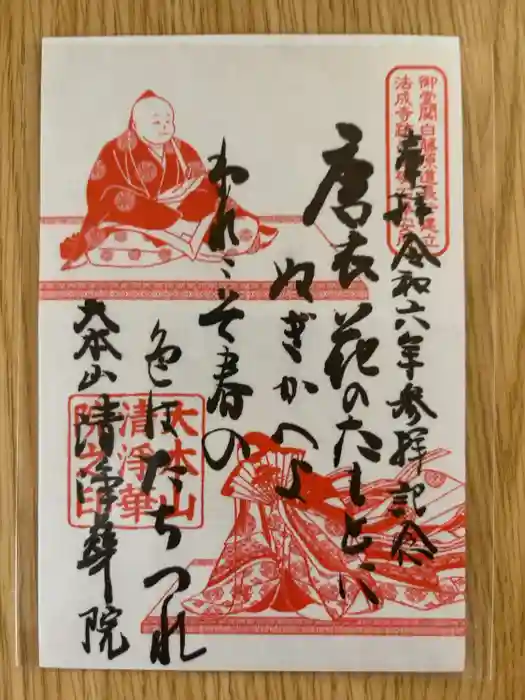 御堂関白藤原道長公建立
法成寺跡
奉拝 令和六年参拝記念
唐衣 花のたもとに
ぬぎかへよ
われこそ春の
色はたちつれ
大本山 清浄華院
大本山
清浄華
院之印